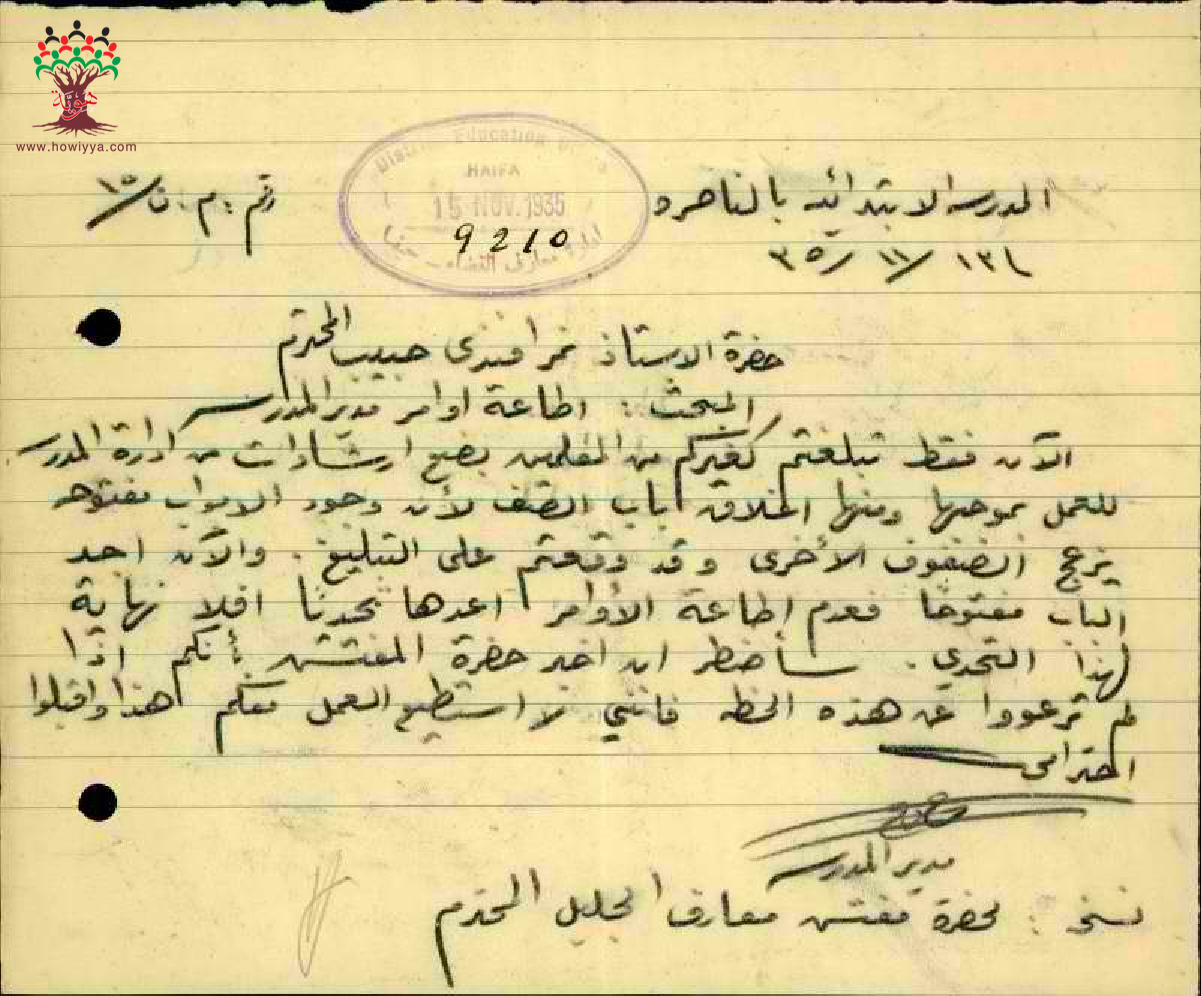 هوية
www.howiyya.com
District Education Office
HAIFA
15 NOV. 1935
9210
ادارة معارف القضاء - حيفا
المدرسه الابتدائيه بالناصره
رقم: م. ن/١٥
١٣/ ١١/ ٣٥
حضرة الاستاذ نمر افندي حبيب المحترم
المبحث : اطاعة اوامر مدير المدرسه
الآن فقط تبلغتم كغيركم من المعلمين بضع ارشادات من ادارة المدرسه
للعمل بموجبها ومنها اغلاق باب الصف لأن وجود الابواب مفتوحه
يزعج الصفوف الأخرى وقد وقعتم على التبليغ. والآن اجد
الباب مفتوحًا فعدم اطاعة الأوامر اعدها تحديًا افلا نهاية
لهذا التحدي. سأضطر ان اخبر حضرة المفتش بأنكم اذا
لم ترعووا عن هذه الخطه فانني لا استطيع العمل معكم هذا واقبلوا
احترامي
مدير المدرسه
نسخه : لحضرة مفتش معارف الجليل المحترم